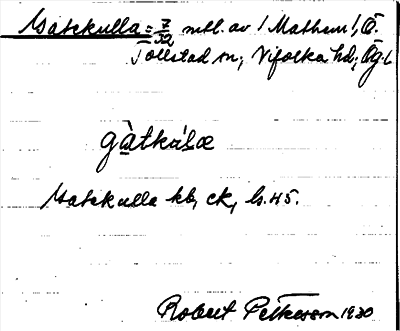 Gatekulla = 7/32 mtl. av 1 Mathem 1, Ö.
Tollstad sn, Vifolka hd, Ög. l.
gàtkúlæ
Gatekulla kb, ck, ls. 45.
Robert Pettersson 1930